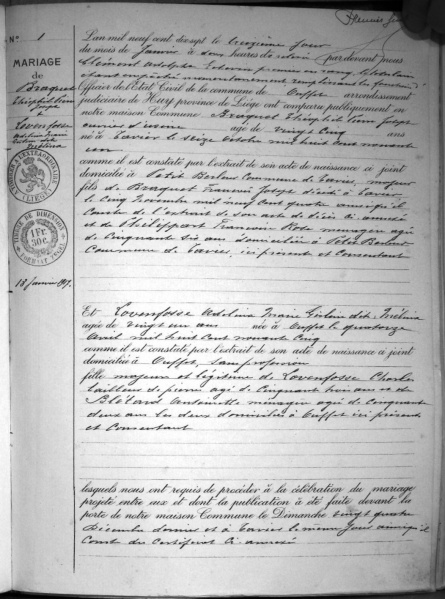 N° 1
MARIAGE
de
Braquet
Théophile Léon
Joseph
&
Lovenfosse
18 Janvier 1917.
L'an mil neuf cent dixsept le treizième jour
du mois de Janvier à heures de par devant nous
Clément Adolphe
Officier de l'Etat Civil de la commune de Ouffet arrondissement
judiciaire de Huy province de Liége ont comparu publiquement en
notre maison Commune Braquet Théophile Léon Joseph
ouvrier d'usine âgé de vingt cinq ans
né à Tavier le seize octobre mil huit cent nonante
un
comme il est constaté par l'extrait de son acte de naissance ci joint
domicilié à Petit Berleur Commune de Tavier, majeur
fils de Braquet François Joseph décédé à Tavier
le cinq Novembre mil neuf cent quatre ainsi qu'il
Conste de l'extrait de son acte de décès ci annexé
et de Philippart Rose ménagère âgée
de cinquante six ans domiciliée à Petit Berleur
Commune de Tavier, ici présente et Consentante
Et Lovenfosse Adelina Marie Ghislain dite Mélina
agée de vingt un ans née à Ouffet le quatorze
Avril mil huit cent nonante cinq
comme il est constaté par l'extrait de son acte de naissance ci joint
domiciliée à Ouffet, sans profession
fille majeure et légitime de Lovenfosse Charles
tailleur de pierre, âgé de cinquante trois ans et de
Blétard Antoinette ménagère âgée de Cinquante
deux ans les deux domiciliés à Ouffet ici présents
et Consentant
lesquels nous ont requis de procéder à la célébration du mariage
projeté entre eux et dont la publication à été faite devant la
porte de notre maison Commune le Dimanche vingt quatre
Décembre dernier et à Tavier le même jour ainsi qu'il
Conste du Certificat Ci annexé